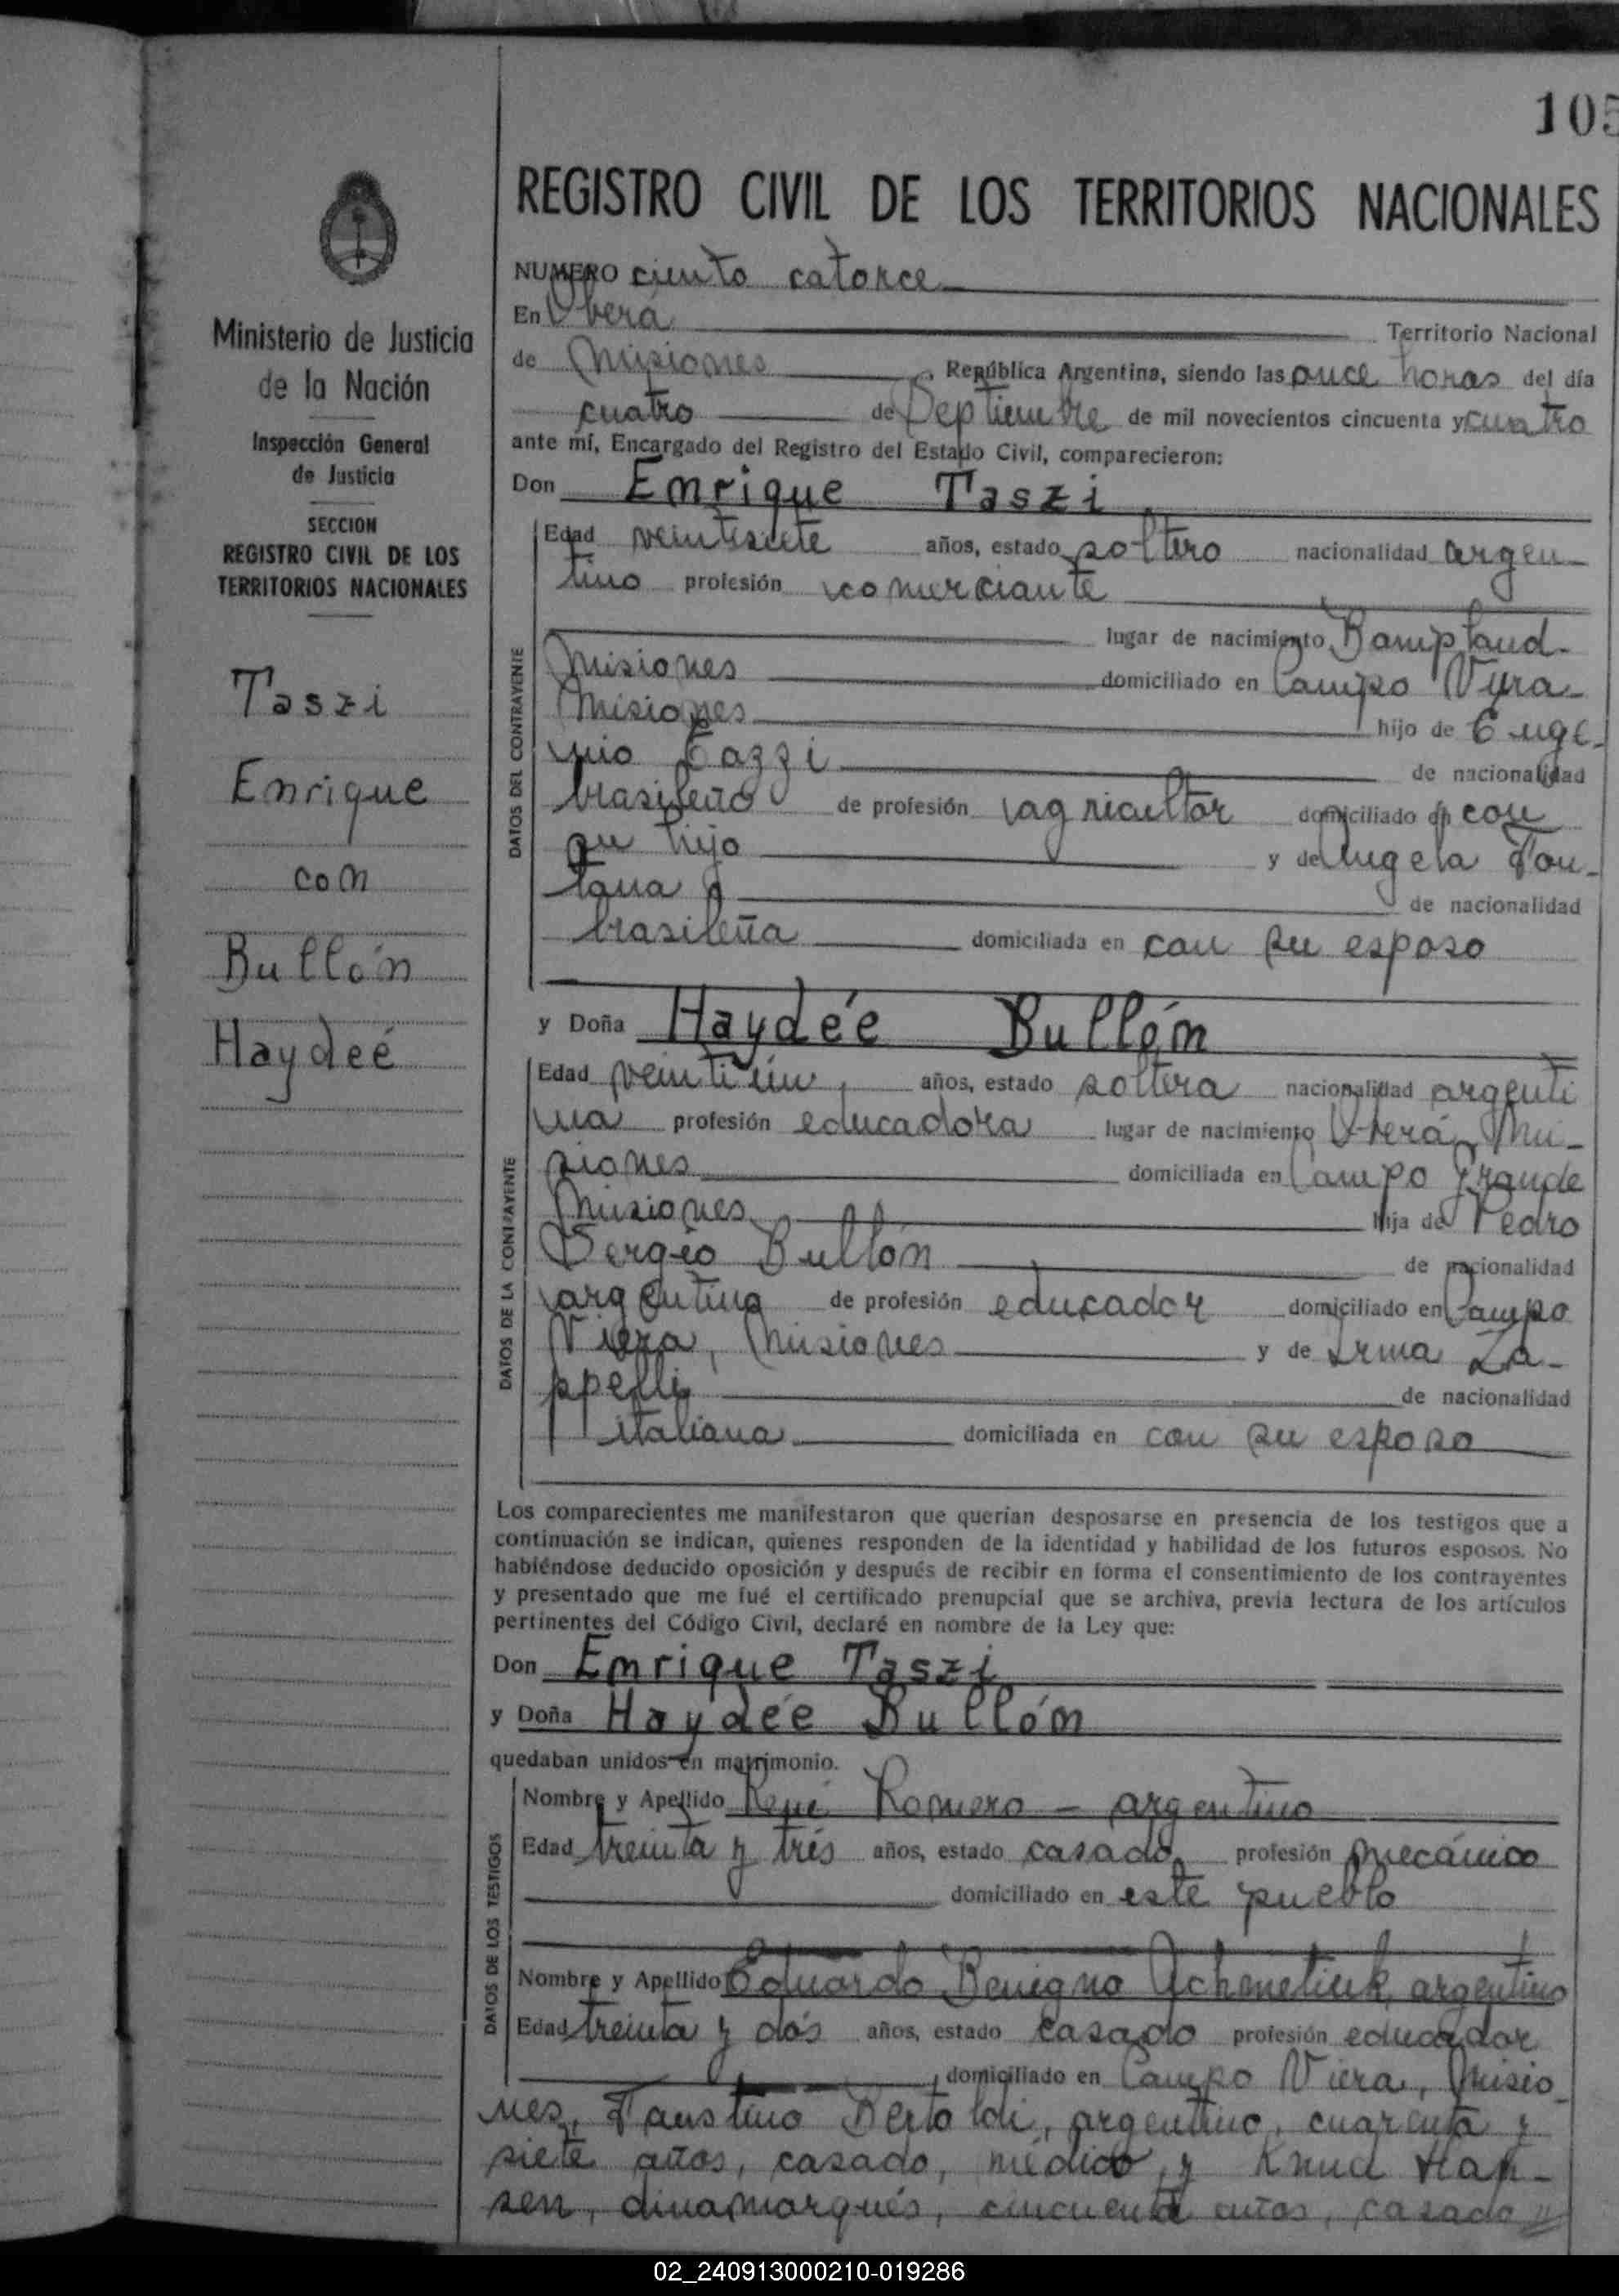 105
REGISTRO CIVIL DE LOS TERRITORIOS NACIONALES
NUMERO ciento catorce
En Oberá Territorio Nacional
de Misiones, República Argentina, siendo las once horas del día
cuatro de Septiembre de mil novecientos cincuenta y cuatro
ante mí, Encargado del Registro del Estado Civil, comparecieron:
Don Enrique Taszi
Edad veintisiete años, estado soltero nacionalidad argen-
tino profesión comerciante
lugar de nacimiento Bompland-
Misiones domiciliado en Campo Viera-
Misiones hijo de Euge-
nio Tazzi de nacionalidad
brasileño de profesión agricultor domiciliado en con
su hijo y de Angela Fon-
tana de nacionalidad
brasileña domiciliada en con su esposo
y Doña Haydée Bullón
Edad veintiún años, estado soltera nacionalidad argenti
na profesión educadora lugar de nacimiento Oberá, Mi-
siones domiciliada en Campo Grande
Misiones hija de Pedro
Sergio Bullón de nacionalidad
argentina de profesión educador domiciliado en Campo
Viera, Misiones y de Irma Za-
ppelli de nacionalidad
italiana domiciliada en con su esposo
Los comparecientes me manifestaron que querían desposarse en presencia de los testigos que a
continuación se indican, quienes responden de la identidad y habilidad de los futuros esposos. No
habiéndose deducido oposición y después de recibir en forma el consentimiento de los contrayentes
y presentado que me fué el certificado prenupcial que se archiva, previa lectura de los artículos
pertinentes del Código Civil, declaré en nombre de la Ley que:
Don Enrique Taszi
y Doña Haydée Bullón
quedaban unidos en matrimonio.
Nombre y Apellido René Romero - argentino
Edad treinta y trés años, estado casado profesión mecánico
domiciliado en este pueblo
Nombre y Apellido Eduardo Benigno argentino
Edad treinta y dós años, estado casado profesión educador
domiciliado en Campo Viera, Misio-
nes, Faustino Bertoldi, argentino, cuarenta y
siete años, casado, médico, y Knud Han-
sen, dinamarqués, cincuenta años, casado
Ministerio de Justicia
de la Nación
Inspección General
de Justicia
SECCION
REGISTRO CIVIL DE LOS
TERRITORIOS NACIONALES
Taszi
Enrique
con
Bullón
Haydeé
DATOS DEL CONTRAYENTE
DATOS DE LA CONTRAYENTE
DATOS DE LOS TESTIGOS
02_240913000210-019286